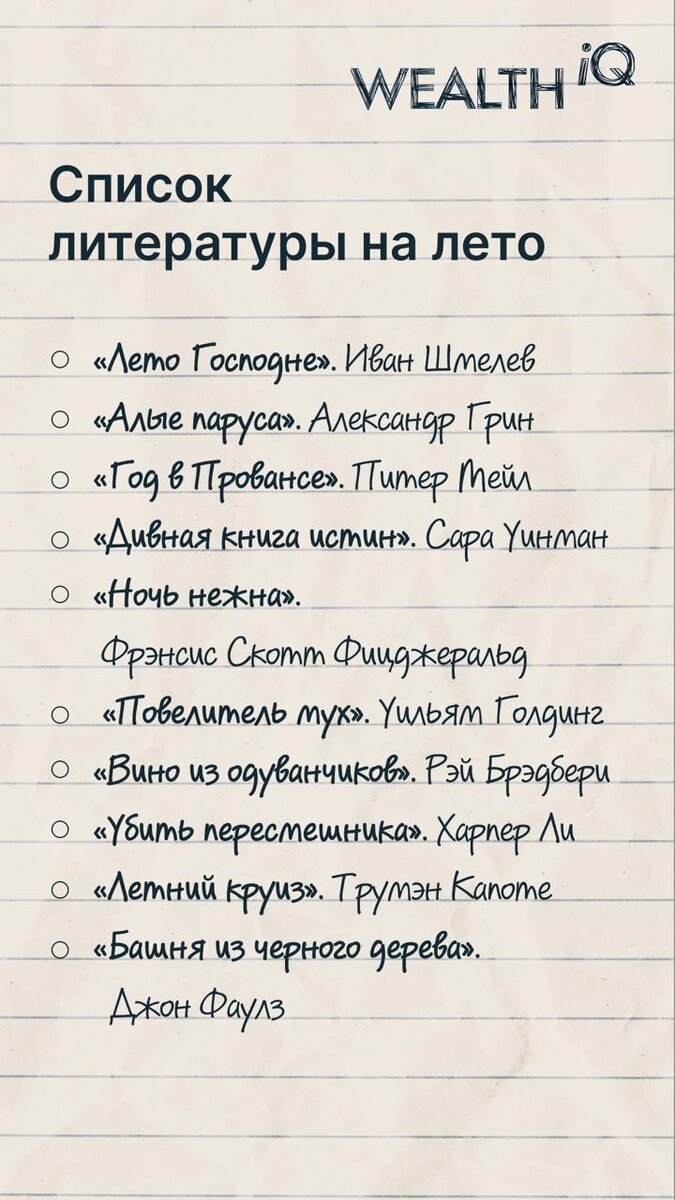 WEALTH iQ
Список
литературы на лето
«Лето Господне». Иван Шмелев
«Алые паруса». Александр Грин
«Год в Провансе». Питер Мейл
«Дивная книга истин». Сара Уинман
«Ночь нежна».
Фрэнсис Скотт Фицджеральд
«Повелитель мух». Уильям Голдинг
«Вино из одуванчиков». Рэй Брэдбери
«Убить пересмешника». Харпер Ли
«Летний круиз». Трумэн Капоте
«Башня из черного дерева».
Джон Фаулз